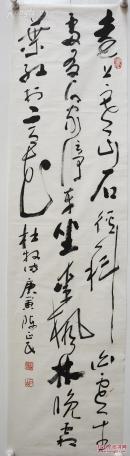 远上寒山石径斜白雲生
处有人家停车坐爱枫林晚霜
葉红於二月花 杜牧诗 庚寅 陈正民